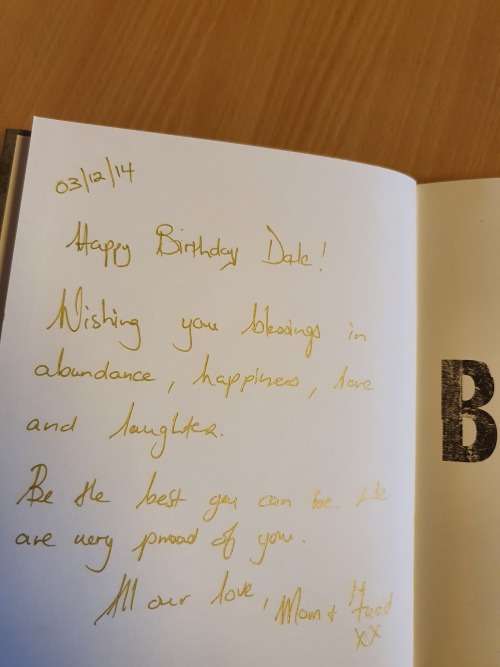 03/12/14
Happy Birthday Dale!
Wishing you blessings in
abundance, happiness, love
and laughter.
Be the best you can be. We
are very proud of you.
All our love, Mom +
xx
B